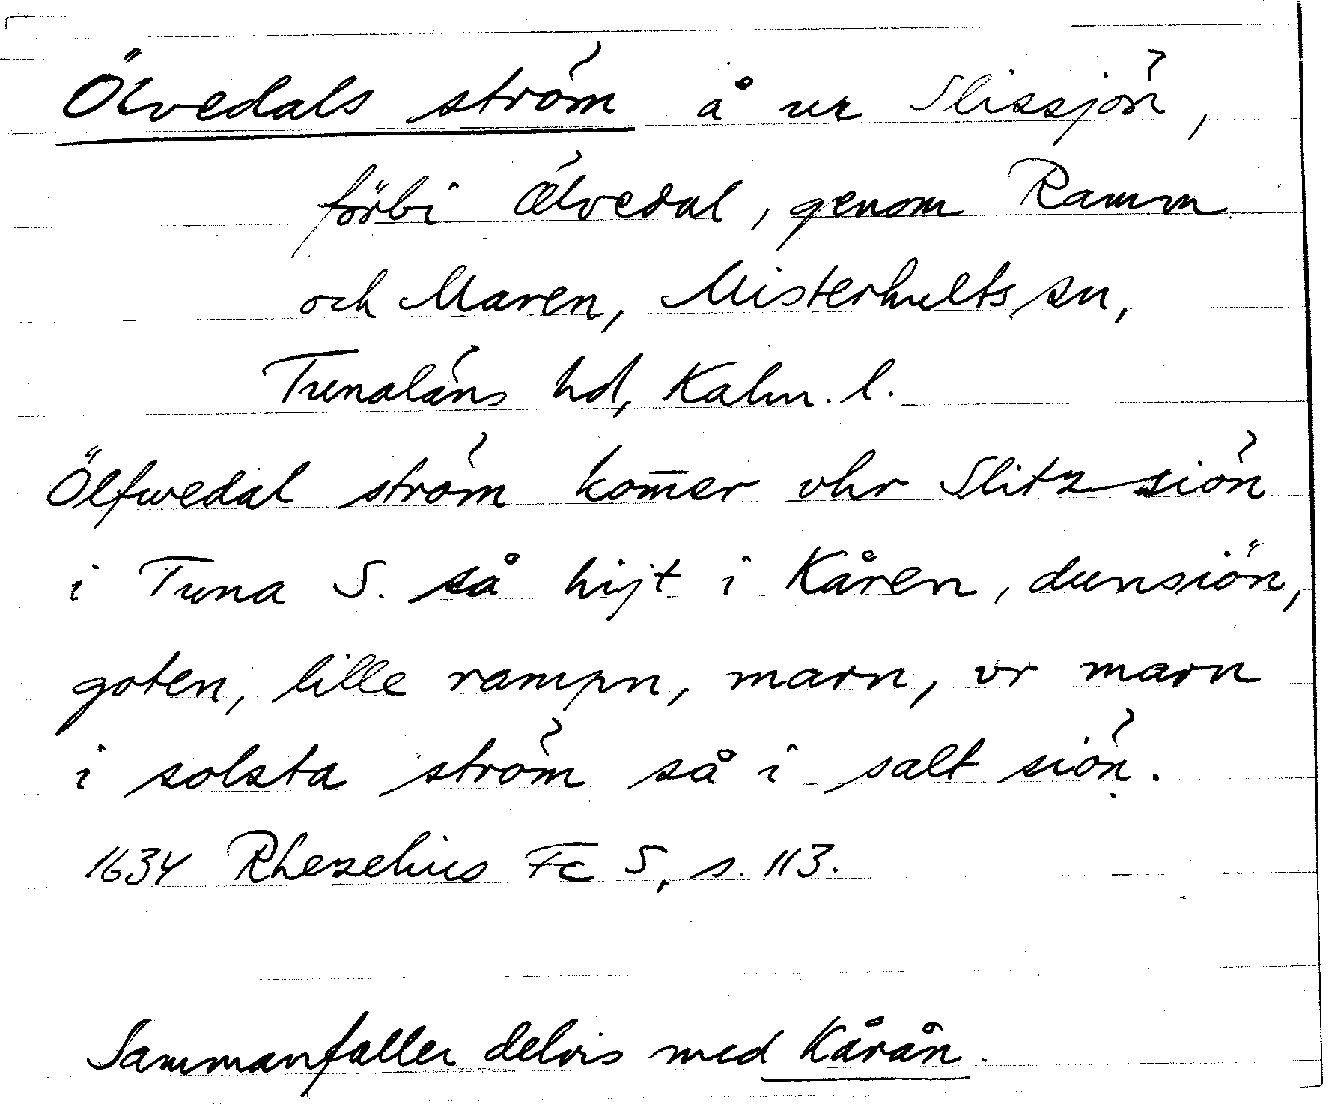 Ölvedals ström å ur Slissjön,
förbi Ölvedal, genom Ramm
och Maren, Misterhults sn,
Tunaläns hd, Kalm. l.
Ölfwedal ström kom̅er vhr Slitz siön
i Tuna S. så hijt i Kåren, dunsiön,
goten, lille rampn, marn, vr marn
i solsta ström så i salt siön.
1634 Rhezelius Fc 5, s. 113.
Sammanfaller delvis med Kårån.